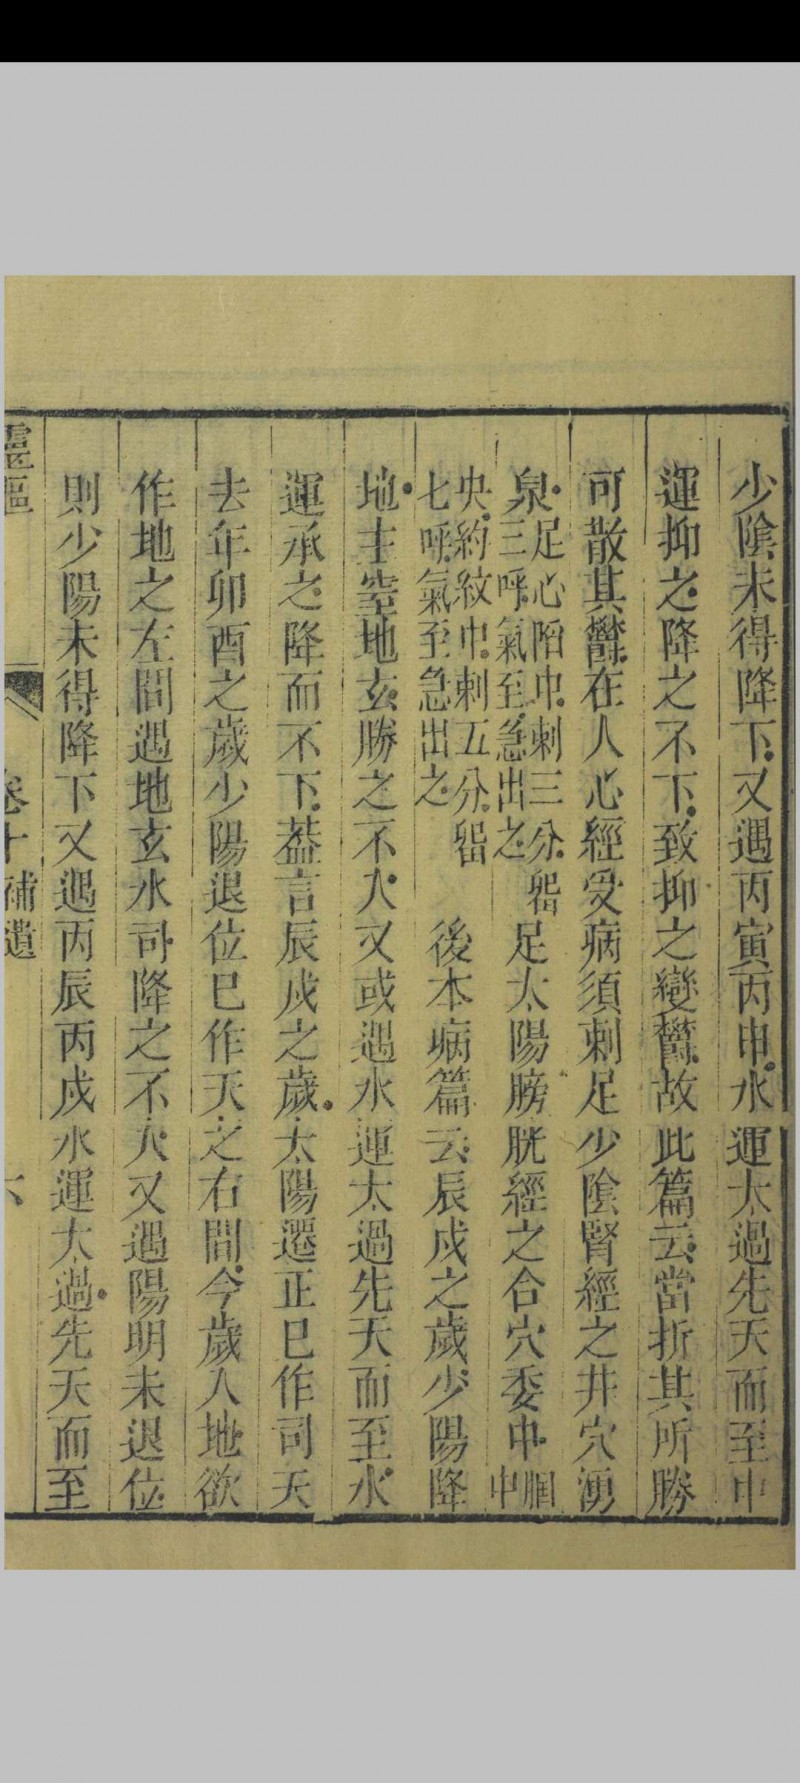 少陰未得降下又遇丙寅丙申水運太過先天而至中
運抑之降之不下致抑之變鬱故此篇云當折其所勝
可散其鬱在人心經受病須刺足少陰腎經之井穴湧
泉足心陷中刺三分留三呼氣至急出之足太陽膀胱經之合穴委中膕中
央約紋中刺五分留七呼氣至急出之後本病篇云辰戌之歲少陽降
地主窒地玄勝之不入又或遇水運太過先天而至水
運承之降而不下葢言辰戌之歲太陽遷正已作司天
去年卯酉之歲少陽退位已作天之右間今歲入地欲
作地之左間遇地玄水司降之不入又遇陽明未退位
則少陽未得降下又遇丙辰丙戌水運太過先天而至
靈樞 卷十補遺 六